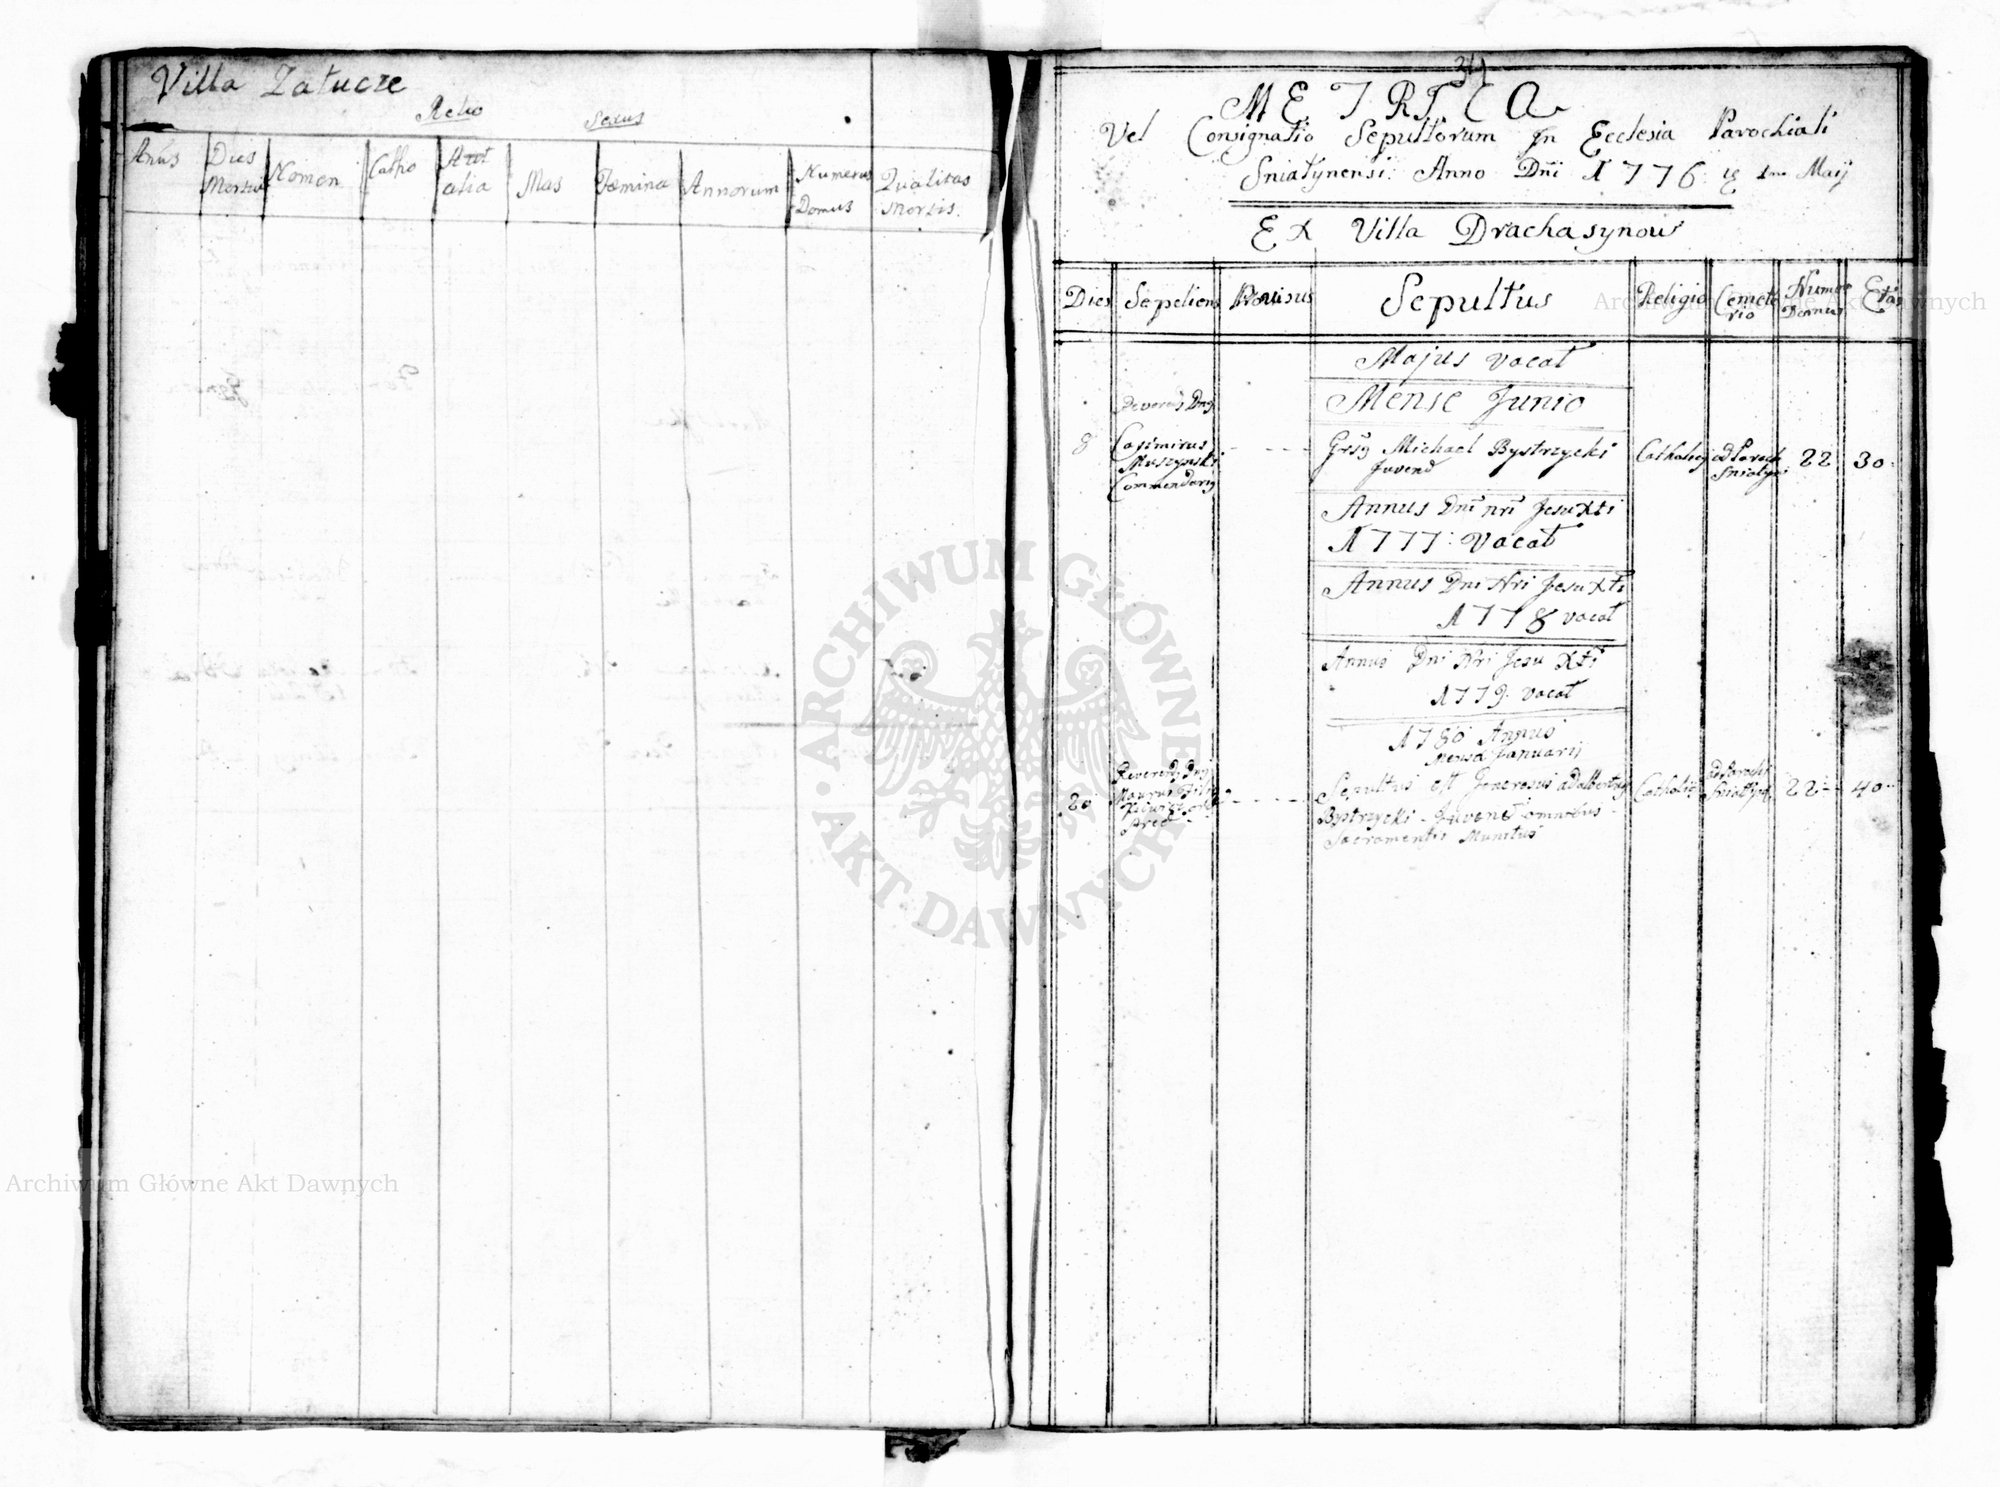 Villa Zatucze
Relio Sexus
Anus Dies Mortis Nomen Catho Aut alia Mas Fœmina Annorum Numerus Domus Qualitas Mortis.
34
METRICA
Vel Consignatio Sepultorum In Ecclesia Parochiali
Sniatynensi Anno Dni 1776 Maij
Ex Villa Drachasynow
Dies Sepeliens Provisus Sepultus Religio Cemete rio Numer Domus Etas
Majus vacat
Mense Junio
8
Reverds Dns
Casimirus
Muszynski
Commendarg
Grsg Michael Bystrzycki
Juvend
Catholicg
ad Paroch
Sniatyn
22
30
Annus Dni nri Jesu Xti
1777: vacat
Annus Dni Nri Jesu Xti
1778 vacat
Annus Dni Nri Jesu Xti
1779: vacat
1780 Annus
Mense Januarij
20
Reverendg Dng
Maurus
Sepultus est Generosus Adalbertus
Bystrzycki Juvend omnibus
Sacramentis Munitus
Catholic
ad Paroch
Sniatyn
22
40
ARCHIWUM GŁÓWNE AKT DAWNYCH
Archiwum Główne Akt Dawnych
Archiwum Główne Akt Dawnych